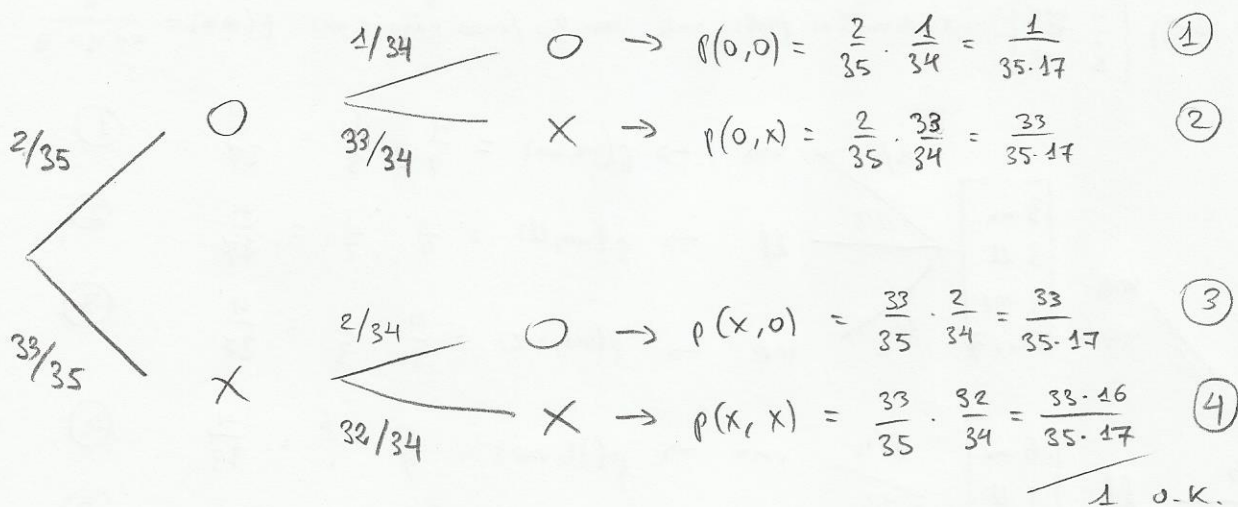 1/34 O → p(0,0) = 2/35 · 1/34 = 1/35·17 ①
2/35 O
33/34 X → p(0,x) = 2/35 · 33/34 = 33/35·17 ②
2/34 O → p(x,0) = 33/35 · 2/34 = 33/35·17 ③
33/35 X
32/34 X → p(x,x) = 33/35 · 32/34 = 33·16/35·17 ④
1 O.K.